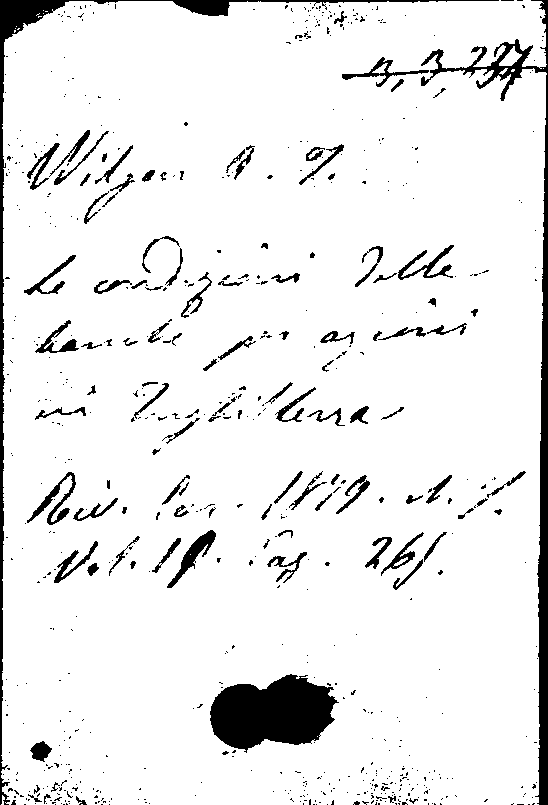 3, 3, 237
Wilson A. J.
Le condizioni delle
banche per azioni
in Inghilterra
Riv. Eur. 1879. A. X.
Vol. 12. Pag. 265.